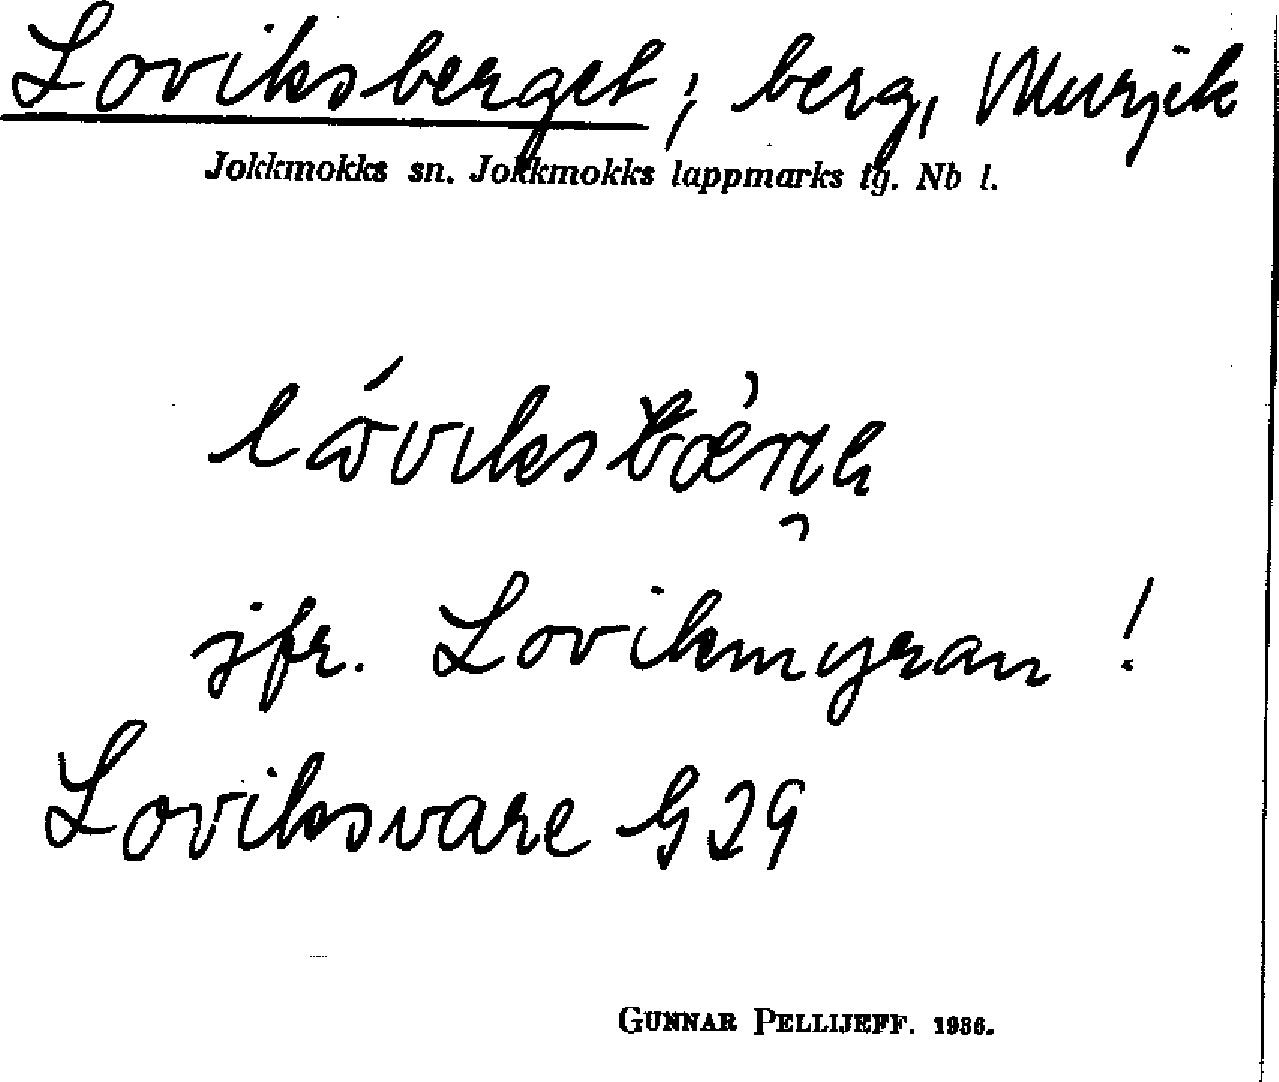 Loviksberget; berg, Murjek
Jokkmokks sn. Jokkmokks lappmarks tg. Nb l.
jfr. Lovikmyran !
Loviksvare G29
GUNNAR PELLIJEFF. 1986.